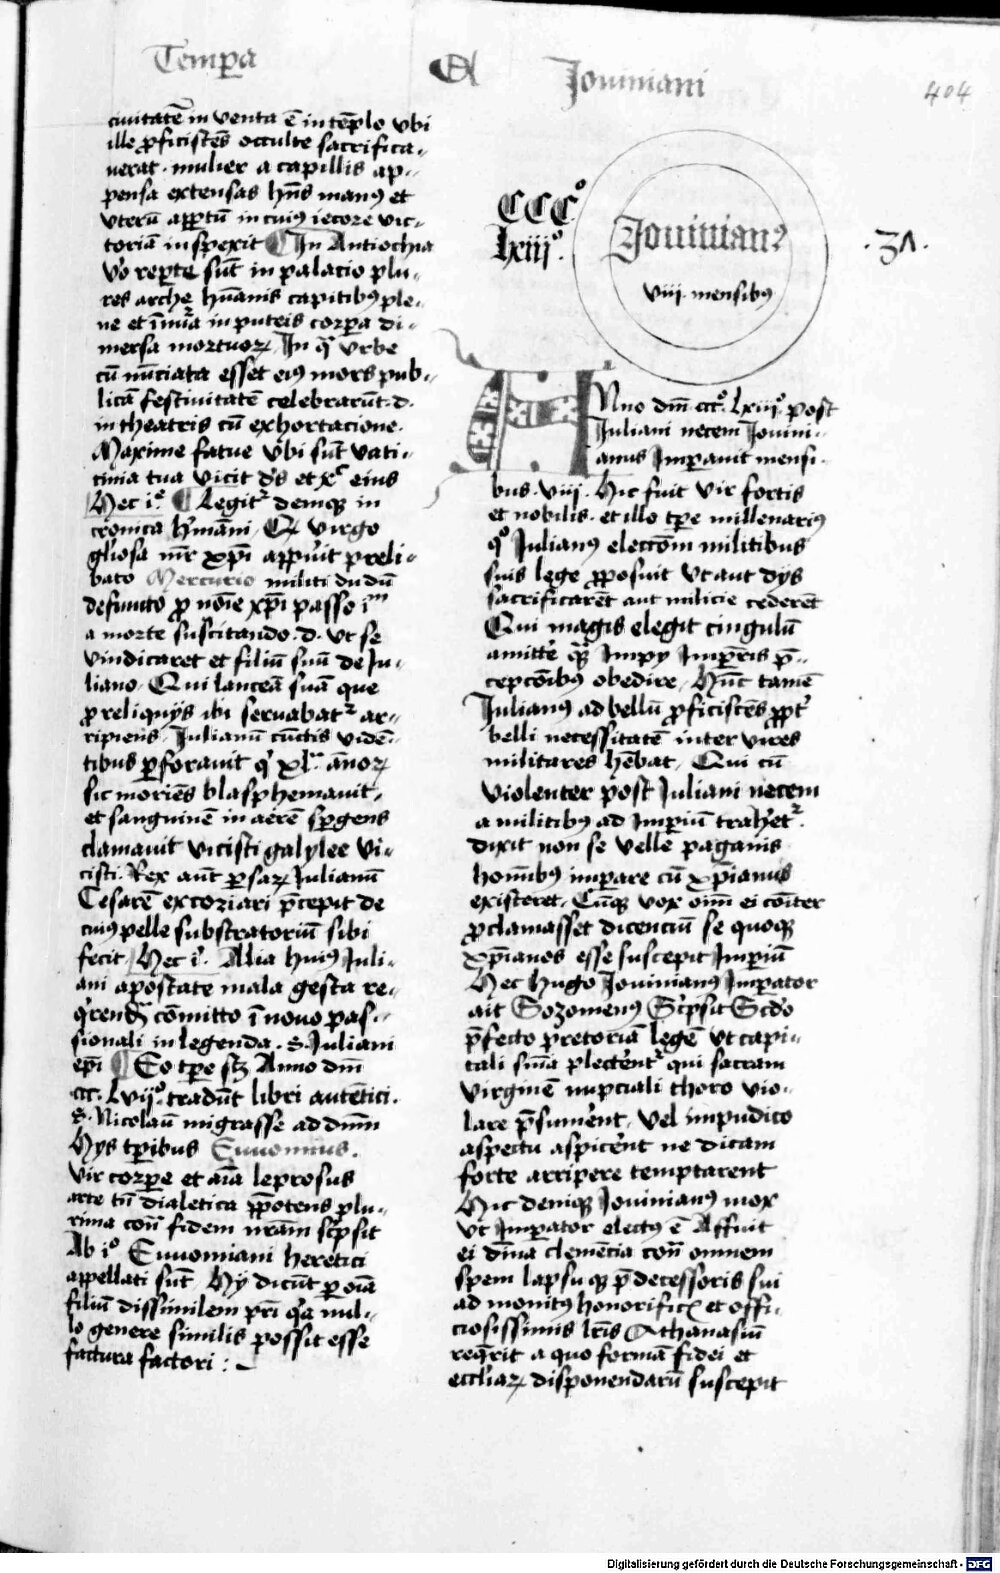 Temp̄a
Jouiniani
404
ciuitatē in venta ē in tēplo vbi
ille ꝓficiscēs occulte sacrifica-
uerat. mulier a capillis ap-
pensa extensas hn̄s manꝰ et
vterū apꝑtū in cuiꝰ iecore vic-
toriā inspexit ¶ In Antiochia
v̊o reꝑte sūt in palacio plu-
res arche hūanis capitibꝰ ple-
ne et in puteis corꝑa di-
mersa mortuoꝝ. In q̄ vrbe
cū nūciata esset eiꝰ mors pub-
licā festiuitatē celebrarūt. d.
in theatris cū exhortacione.
Maxime fatue vbi sūt vati-
cinia tua vicit dꝰs et xꝰ eius
Hec iº. ¶ Legitr demqꝫ in
cronica hʼmāni. Qꝫ virgo
gl̄iosa mr̄ xp̄i apꝑuit preli-
bato Mercurio militi dudū
defuncto ꝓ noīe xp̄i passo im
a morte suscitando. d. vt se
vindicaret et filiū suū de Ju-
liano. Qui lanceā suā que
ꝓ reliquijs ibi seruabatr ar-
ripiens. Julianū cūctis vidē-
tibus ꝑforauit
sic moriēs blasphemauit.
et sanguinē in aerē sp̄gens
clamauit vicisti galylee vi-
cisti. Rex aūt ꝑsaꝝ Julianū
Cesarē excoriari p̄cepit de
cuiꝰ pelle substratoriū sibi
fecit. Hec iº. Alia huiꝰ Juli-
ani apostate mala gesta re-
cōmitto ī nouo pas-
sionali in legenda. s. Juliani
ep̄i ¶ Eo tp̄e scꝫ Anno dn̄i
ccc. Lvijº. tradūt libri autētici.
s. Nicolaū migrasse ad dn̄m
Hys tꝑibus Euuomius.
vir corꝑe et aīa leprosus
arte tn̄ dialetica p̄potens plu-
rima con̄ fidem nr̄am sc̄psit
Ab iº Euuomiani heretici
appellati sūt. Hy dicūt ꝑ oīa
filiū dissimilem pr̄i q̄a nul-
lo genere similis possit esse
factura factori : —
CCCº.
lxiijº.
Jouinianꝰ
viij. mensibꝰ
.37.
Anno dn̄i cccº. Lxiijº. post
Juliani necem Jouini-
anus Imꝑauit mensi-
bus. viij. Hic fuit vir fortis
et nobilis. et illo tp̄e millenariꝰ
qº Julianꝰ electōm militibus
suis lege ꝓposuit vt aut dijs
sacrificarēt aut milicie cederēt
Qui magis elegit cingulū
amittʼe Impij Imꝑris p̄-
ceptōibꝰ obedire. Hūc tamē
Julianꝰ ad bellū ꝓficiscēs ꝓptʼ
belli necessitatē inter vires
militares hēbat. Qui cū
violenter post Juliani necem
a militibꝰ ad Imꝑiū trahʼetr.
dixit non se velle paganis
hoīibus imꝑare cū xp̄ianus
existeret. Cūqꝫ vox oīm ei cōiter
ꝓclamasset dicenciū se quoqꝫ
xp̄ianos esse suscepit Imꝑiū
Hec Hugo Jouinianꝰ Imꝑator
ait Sozomenꝰ Sc̄psit Scd̊o
p̄fecto pretoriā legē vt capi-
tali sn̄ia plectʼentr qui sacram
virginē nupciali thoro vio-
lare p̄sumʼent. vel impudico
aspectu aspicʼent ne dicam
forte arripere temptarent
Hic deniqꝫ Jouinianꝰ mox
vt Imꝑator electꝰ ē Affuit
ei diuīa clemēcia con̄ omnem
spem lapsuqꝫ p̄decessoris sui
ad monitꝰ honorificꝭ et offi-
ciosissimis lr̄is Athanasiū
req̄rit a quo formā fidei et
eccl̄iaꝝ disponendarū suscepit
Digitalisierung gefördert durch die Deutsche Forschungsgemeinschaft - DFG